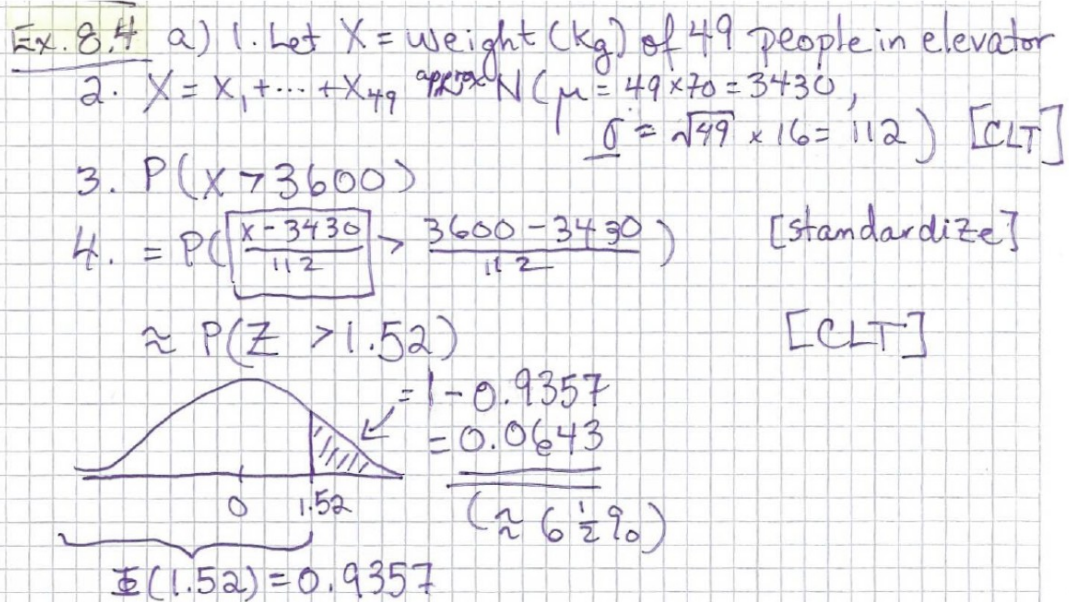 Ex. 8.4 a) 1. Let X = weight (kg) of 49 people in elevator
2. X = X₁ + ⋯ + X₄₉ approx N(μ = 49×70 = 3430,
σ = √49 × 16 = 112) [CLT]
3. P(X > 3600)
4. = P( (X - 3430)/112 > (3600 - 3430)/112 ) [standardize]
≈ P(Z > 1.52) [CLT]
= 1 - 0.9357
= 0.0643
0 1.52
(≈ 6 ½ %)
Φ(1.52) = 0.9357